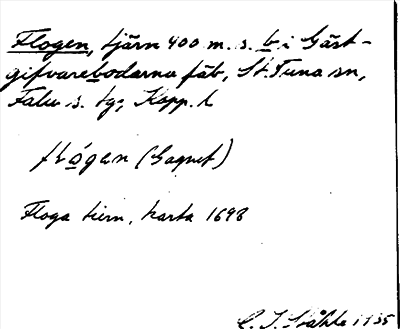 Flogen, tjärn 400 m. s. b. i Gäst-
gifvarebodarna fäb, St. Tuna sn,
Falu s. tg, Kopp. l
flógen (Sagnet)
Floga tiern, karta 1698
C. I. Ståhle 1935